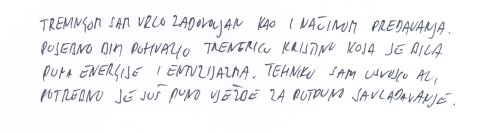 TRENINGOM SAM VRLO ZADOVOLJAN KAO I NAČINOM PREDAVANJA.
POSEBNO BIH POHVALIO TRENERICU KRISTINU KOJA JE BILA
PUNA ENERGIJE I ENTUZIJAZMA. TEHNIKU SAM USVOJIO ALI
POTREBNO JE JOŠ PUNO VJEŽBE ZA POTPUNO SAVLADAVANJE.